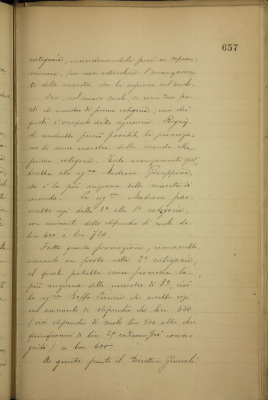 657
categoria, considerandola però in
nuovo, per non ostacolare l'avanzamen
to delle maestre che la seguono nel ruolo.
Ora, nel nuovo ruolo vi sono due po
sti di maestra di prima categoria, uno dei
quali è occupato dalla signorina
perciò possibile la promozio
ne di una maestra della seconda alla
prima categoria. Tale avanzamento spet
terebbe alla sig.na Giuseppina,
che è la più anziana delle maestre di
seconda. La sig.na pas
serebbe così dalla 2ª alla 1ª categoria,
con aumento dello stipendio di ruolo da
lire 600 a lire 720.
Fatta questa promozione, rimarrebbe
vacante un posto nella 2ª categoria
il quale potrebbe esser promossa la
più anziana delle maestre di 3ª, cioè
la sig.na che avrebbe così
un aumento di stipendio da lire 550
(uno stipendio di ruolo lire 500 oltre due
di lire 25 ciascuno già conse
guiti) a lire 600.
A questo punto il Direttore Generale